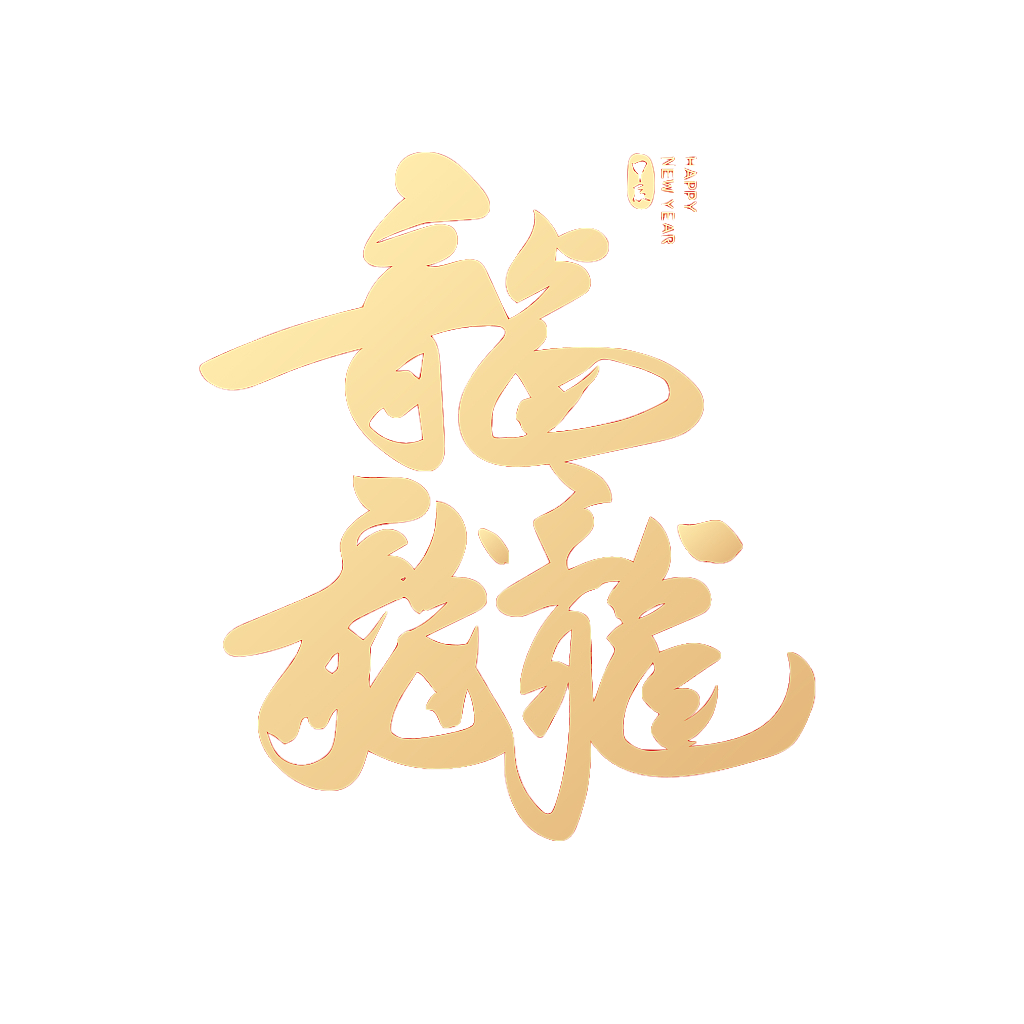 龘
HAPPY
NEW YEAR